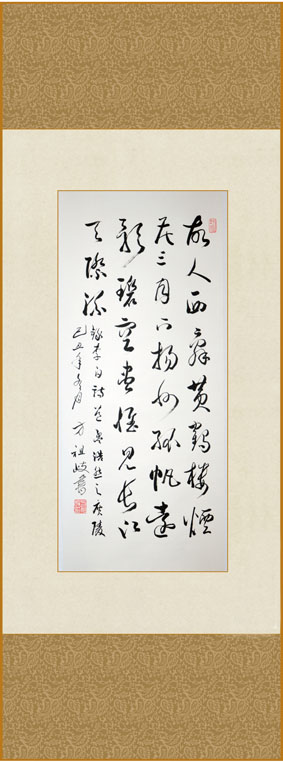 故人西辭黃鶴樓煙
花三月下揚州孤帆遠
影碧空盡惟見長江
天際流
錄李白詩送孟浩然之廣陵
己丑年冬月 方祖岐書